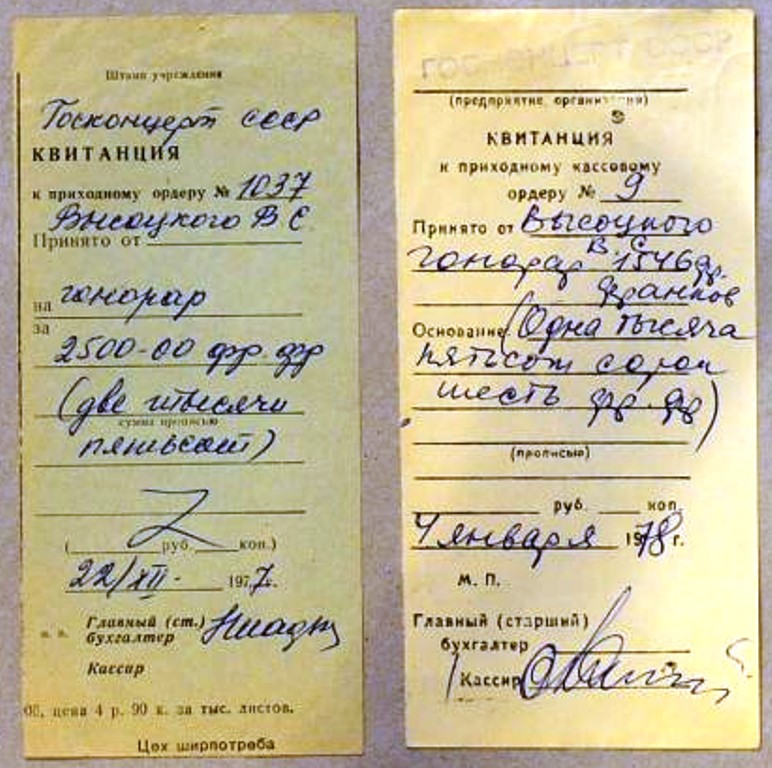 Штамп учреждения
Госконцерт СССР
КВИТАНЦИЯ
к приходному ордеру № 1037
Высоцкого В С
Принято от
на гонорар
за
2500-00 фр фр
(две тысячи
сумма прописью
пятьсот)
( руб. коп.)
22/XII- 1977г.
Главный (ст.)
бухгалтер
Кассир
цена 4 р. 90 к. за тыс. листов.
Цех ширпотреба
ГОСКОНЦЕРТ СССР
(предприятие, организация)
КВИТАНЦИЯ
к приходному кассовому
ордеру № 9
Принято от Высоцкого
В. С.
гонорар 1546 фр.
франков
Основание: (Одна тысяча
пятьсот сорок
шесть фр. фр)
(прописью)
руб. коп.
4 января 1978 г.
М. П.
Главный (старший)
бухгалтер
Кассир